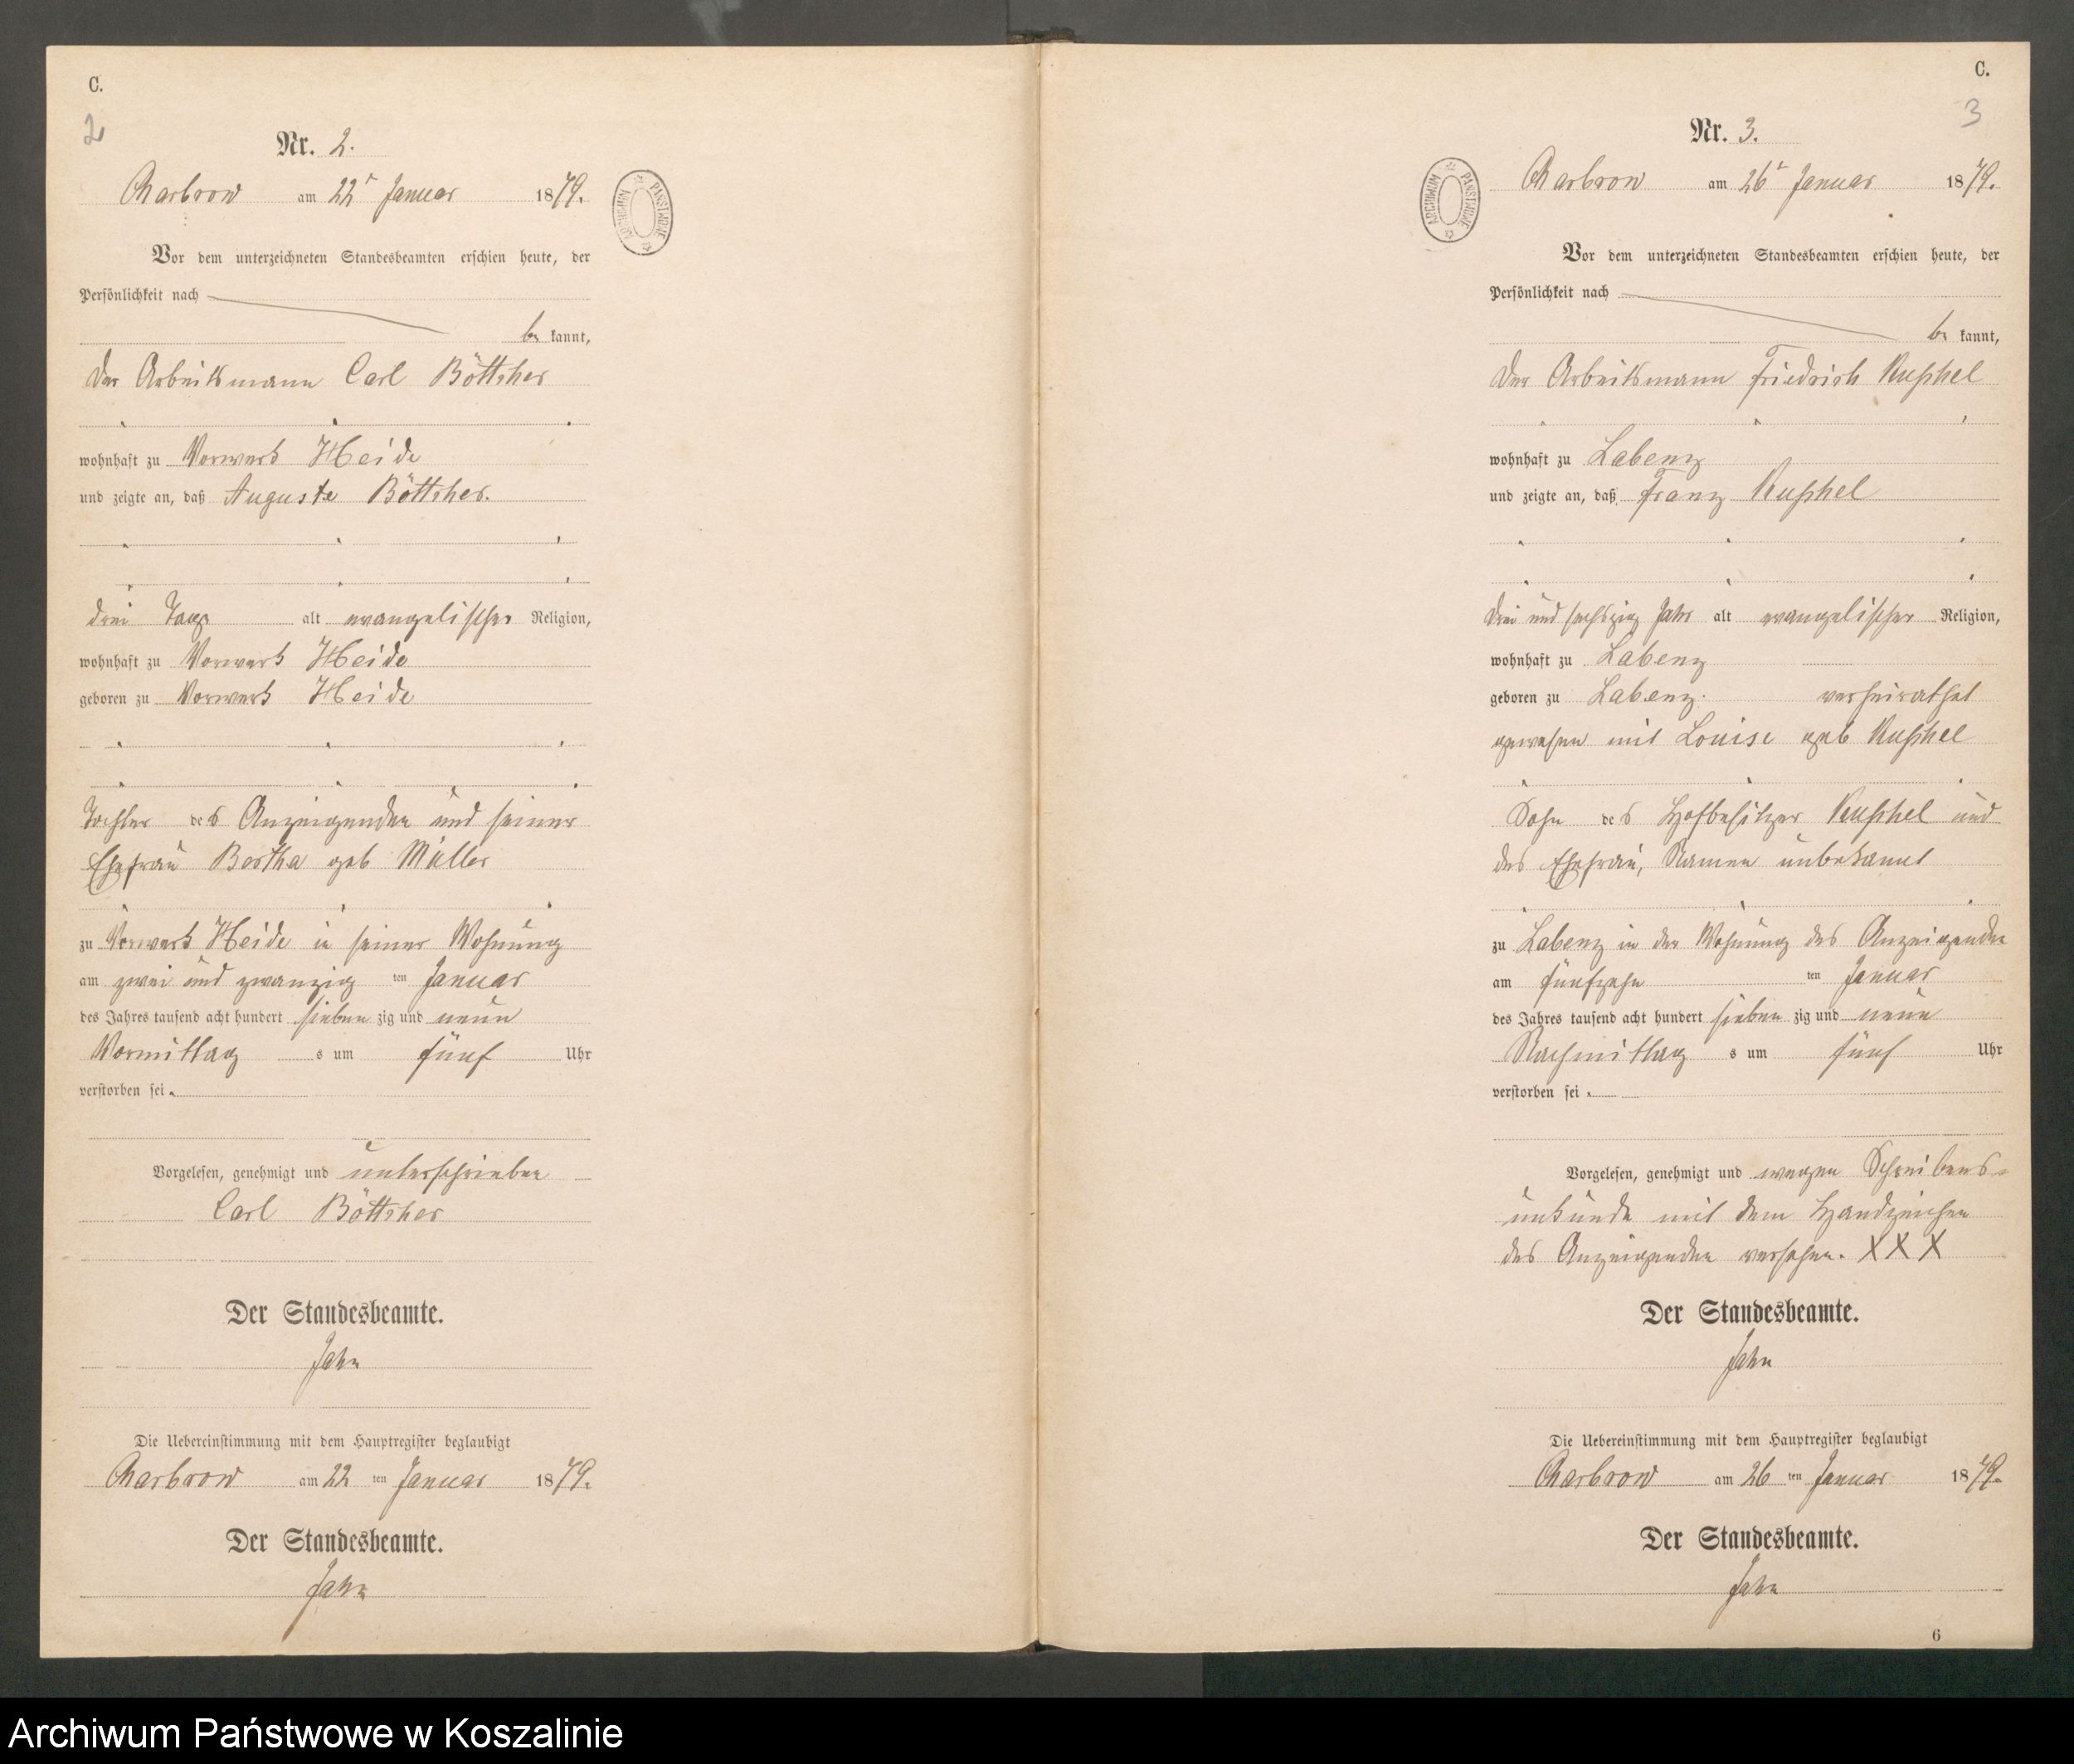 C.
2
Nr. 2.
Charbrow am 22t Januar 1879.
ARCHIWUM PAŃSTWOWE
Vor dem unterzeichneten Standesbeamten erschien heute, der
Persönlichkeit nach
be kannt,
der Arbeitsmann Carl Böttcher
wohnhaft zu Vorwerk Heide
und zeigte an, daß Auguste Böttcher.
drei Tage alt evangelischer Religion,
wohnhaft zu Vorwerk Heide
geboren zu Vorwerk Heide
Tochter des Anzeigenden und seiner
Ehefrau Bertha geb Müller
zu Vorwerk Heide in seiner Wohnung
am zwei und zwanzig ten Januar
des Jahres tausend acht hundert sieben zig und neun
Vormittag s um fünf Uhr
verstorben sei.
Vorgelesen, genehmigt und unterschrieben
Carl Böttcher
Der Standesbeamte.
Jahn
Die Uebereinstimmung mit dem Hauptregister beglaubigt
Charbrow am 22 ten Januar 1879.
Der Standesbeamte.
Jahn
C.
3
Nr. 3.
Charbrow am 26t Januar 1879.
ARCHIWUM PAŃSTWOWE
Vor dem unterzeichneten Standesbeamten erschien heute, der
Persönlichkeit nach
be kannt,
der Arbeitsmann Friedrich Kuschel
wohnhaft zu Labenz
und zeigte an, daß Franz Kuschel
drei und sechszig Jahr alt evangelischer Religion,
wohnhaft zu Labenz
geboren zu Labenz. verheirathet
gewesen mit Louise geb Kuschel
Sohn des Hofbesitzer Kuschel und
des Ehefrau, Namen unbekannt
zu Labenz in der Wohnung des Anzeigenden
am fünfzehn ten Januar
des Jahres tausend acht hundert sieben zig und neun
Nachmittag s um fünf Uhr
verstorben sei.
Vorgelesen, genehmigt und wegen Schreibens-
unkunde mit dem Handzeichen
des Anzeigenden versehen. X X X
Der Standesbeamte.
Jahn
Die Uebereinstimmung mit dem Hauptregister beglaubigt
Charbrow am 26 ten Januar 1879.
Der Standesbeamte.
Jahn
6
Archiwum Państwowe w Koszalinie